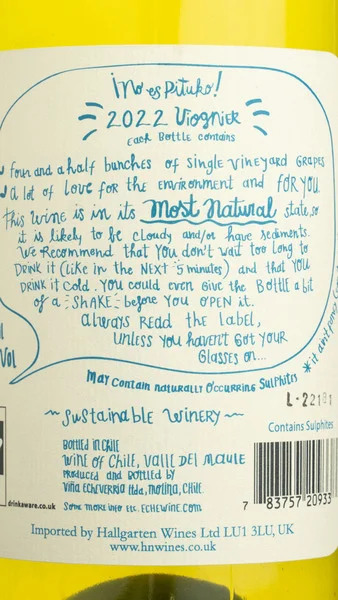 ¡No es Pituko!
2022 Viognier
Each Bottle contains
four and a half bunches of single vineyard grapes
a lot of love for the environment and for you
This wine is in its Most Natural state, so
it is likely to be cloudy and/or have sediments.
We recommend that you don't wait too long to
drink it (like in the next 5 minutes) and that you
drink it cold. You could even give the bottle a bit
of a SHAKE before you open it.
Always read the label,
unless you haven't got your
glasses on...
May contain naturally occurring sulphites
L-22121
Contains Sulphites
~ Sustainable Winery ~
Bottled in Chile
Wine of Chile, Valle del Maule
Produced and bottled by
Viña Echeverria ltda, Molina, Chile.
Some more info etc. echewine.com
drinkaware.co.uk
Vol
7 83757 20933
Imported by Hallgarten Wines Ltd LU1 3LU, UK
www.hnwines.co.uk